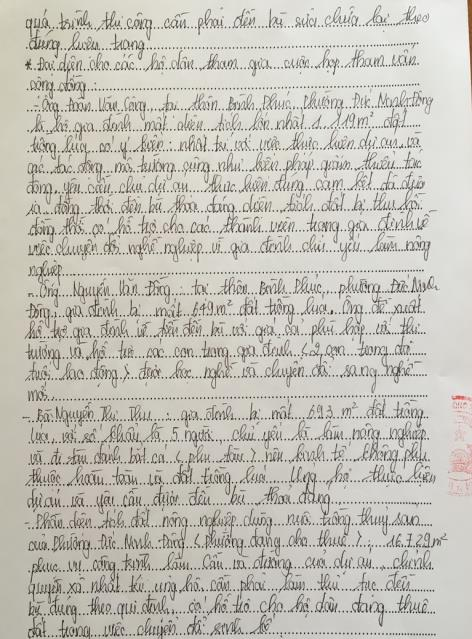 quá trình thi công cần phải đền bù sửa chữa lại theo
đúng hiện trạng
* Đại diện cho các hộ dân tham gia cuộc họp tham vấn
cộng đồng :
- Ông Toàn Văn Công tại thôn Bình Phúc, Phường Đức Ninh Đông
là hộ gia đình mất diện tích lớn nhất 1.119m² đất
trồng lúa có ý kiến nhất trí với việc thực hiện dự án và
các tác động môi trường cũng như biện pháp giảm thiểu tác
động, yêu cầu chủ dự án thực hiện đúng cam kết đã đưa
ra đồng thời đền bù thoả đáng diện tích đất bị thu hồi
đồng thời có hỗ trợ cho các thành viên trong gia đình về
việc chuyển đổi nghề nghiệp vì gia đình chủ yếu làm nông
nghiệp
- Ông Nguyễn Văn Đồng : tại thôn Bình Phúc, phường Đức Ninh
Đông, gia đình bị mất 649m² đất trồng lúa. Ông đề xuất
hỗ trợ gia đình về tiền đền bù với giá cả phù hợp với thị
trường và hỗ trợ các con trong gia đình (2 con trong độ
tuổi lao động) được học nghề và chuyển đổi sang nghề
mới
- Bà Nguyễn Thị Thu : gia đình bị mất 693 m² đất trồng
lúa, với số khẩu là 5 người, chủ yếu là làm nông nghiệp
và đi tàu đánh bắt cá (phụ tàu) nên kinh tế không phụ
thuộc hoàn toàn và đất trồng lúa. Ủng hộ thực hiện
dự án và yêu cầu được đền bù thoả đáng
- Phần diện tích đất nông nghiệp dùng nuôi trồng thuỷ sản
của Phường Đức Ninh Đông (Phường đang cho thuê) : 16.729m²
phục vụ công trình làm cầu và đường của dự án, chính
quyền xã nhất trí ủng hộ cần phải làm thủ tục đền
bù đúng theo qui định, có hỗ trợ cho hộ dân đang thuê
đất trong việc chuyển đổi sinh kế